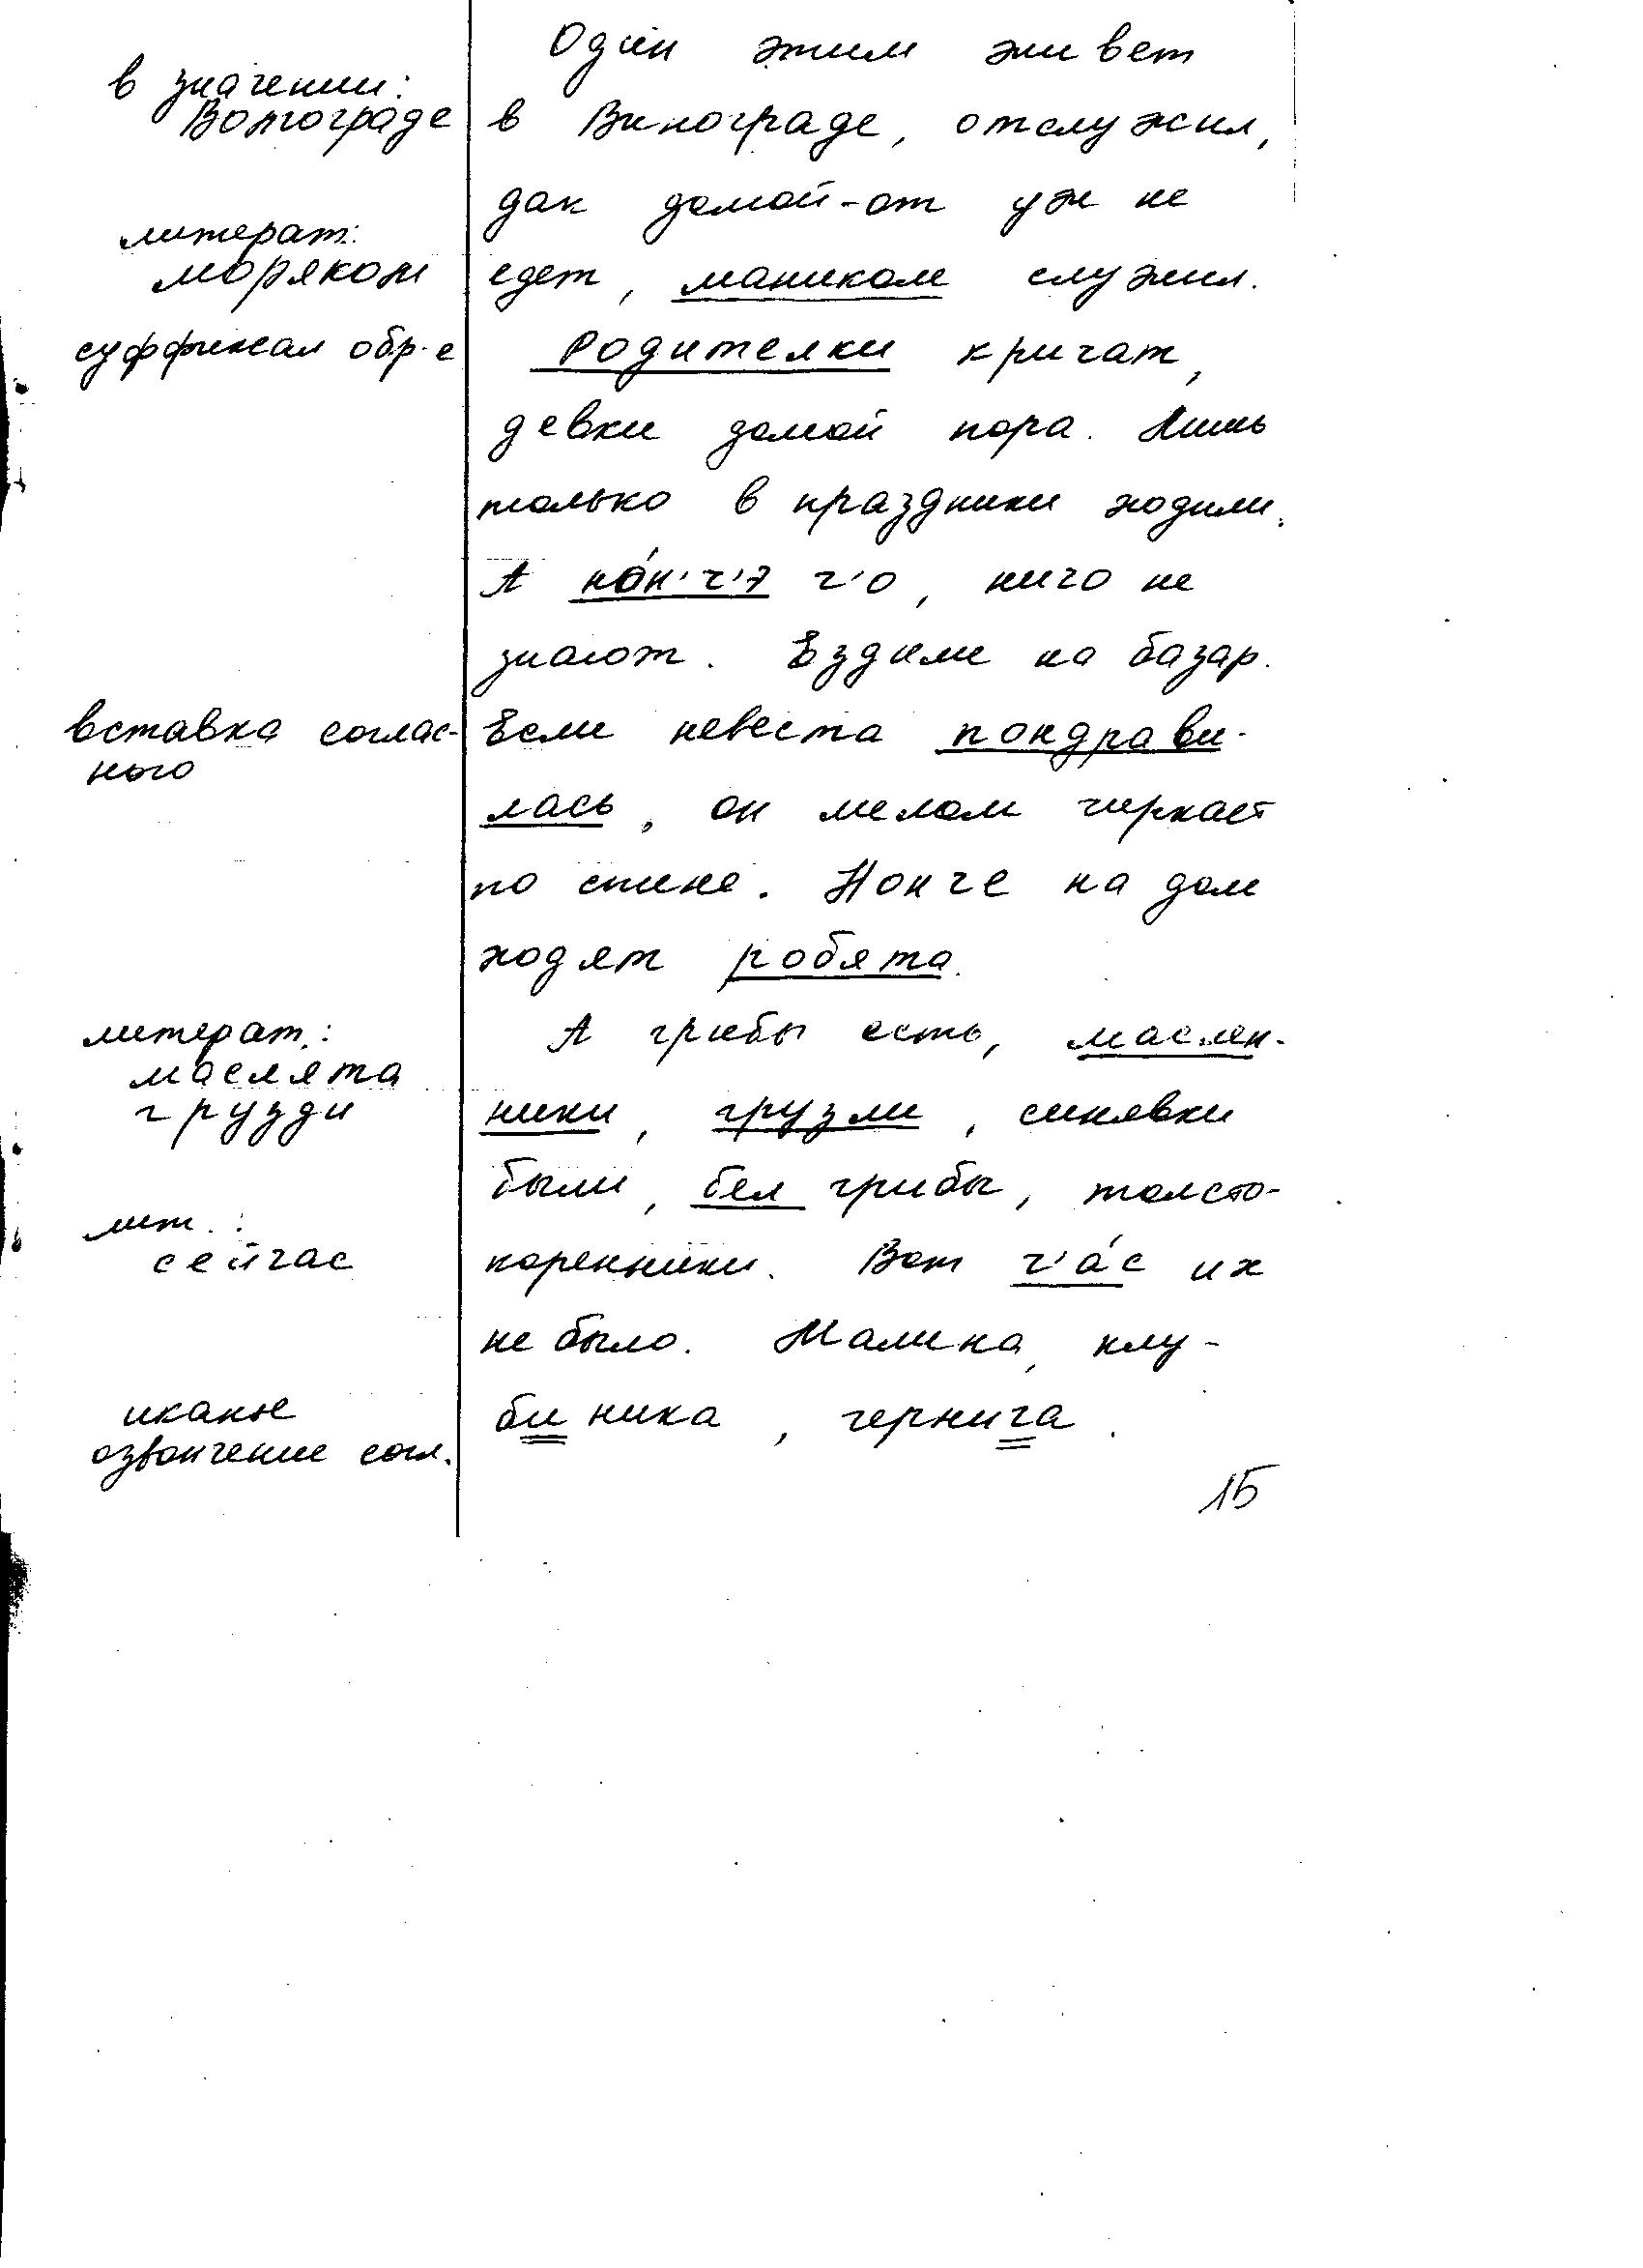 в значении:
Волгограде
литерат:
моряком
суффиксал обр-е
вставка соглас-
ного
литерат.:
маслята
грузди
лит.:
сейчас
иканье
озвончение согл.
Один этим живет
в Винограде, отслужил,
дак домой-от уж не
едет, маником служил.
Родителки кричат,
девки домой пора. Лишь
только в праздники ходили.
А но́н'ч'э ч'о, ничо не
знают. Ездили на базар.
Если невеста пондрави-
лась, он мелом чиркает
по спине. Нонче на дом
ходят робята.
А грибы есть, маслен-
ники, грузли, синявки
были, бел грибы, толсто-
коренники. Вот ч'а́с их
не было. Малина, клу-
биника, чернига.
15